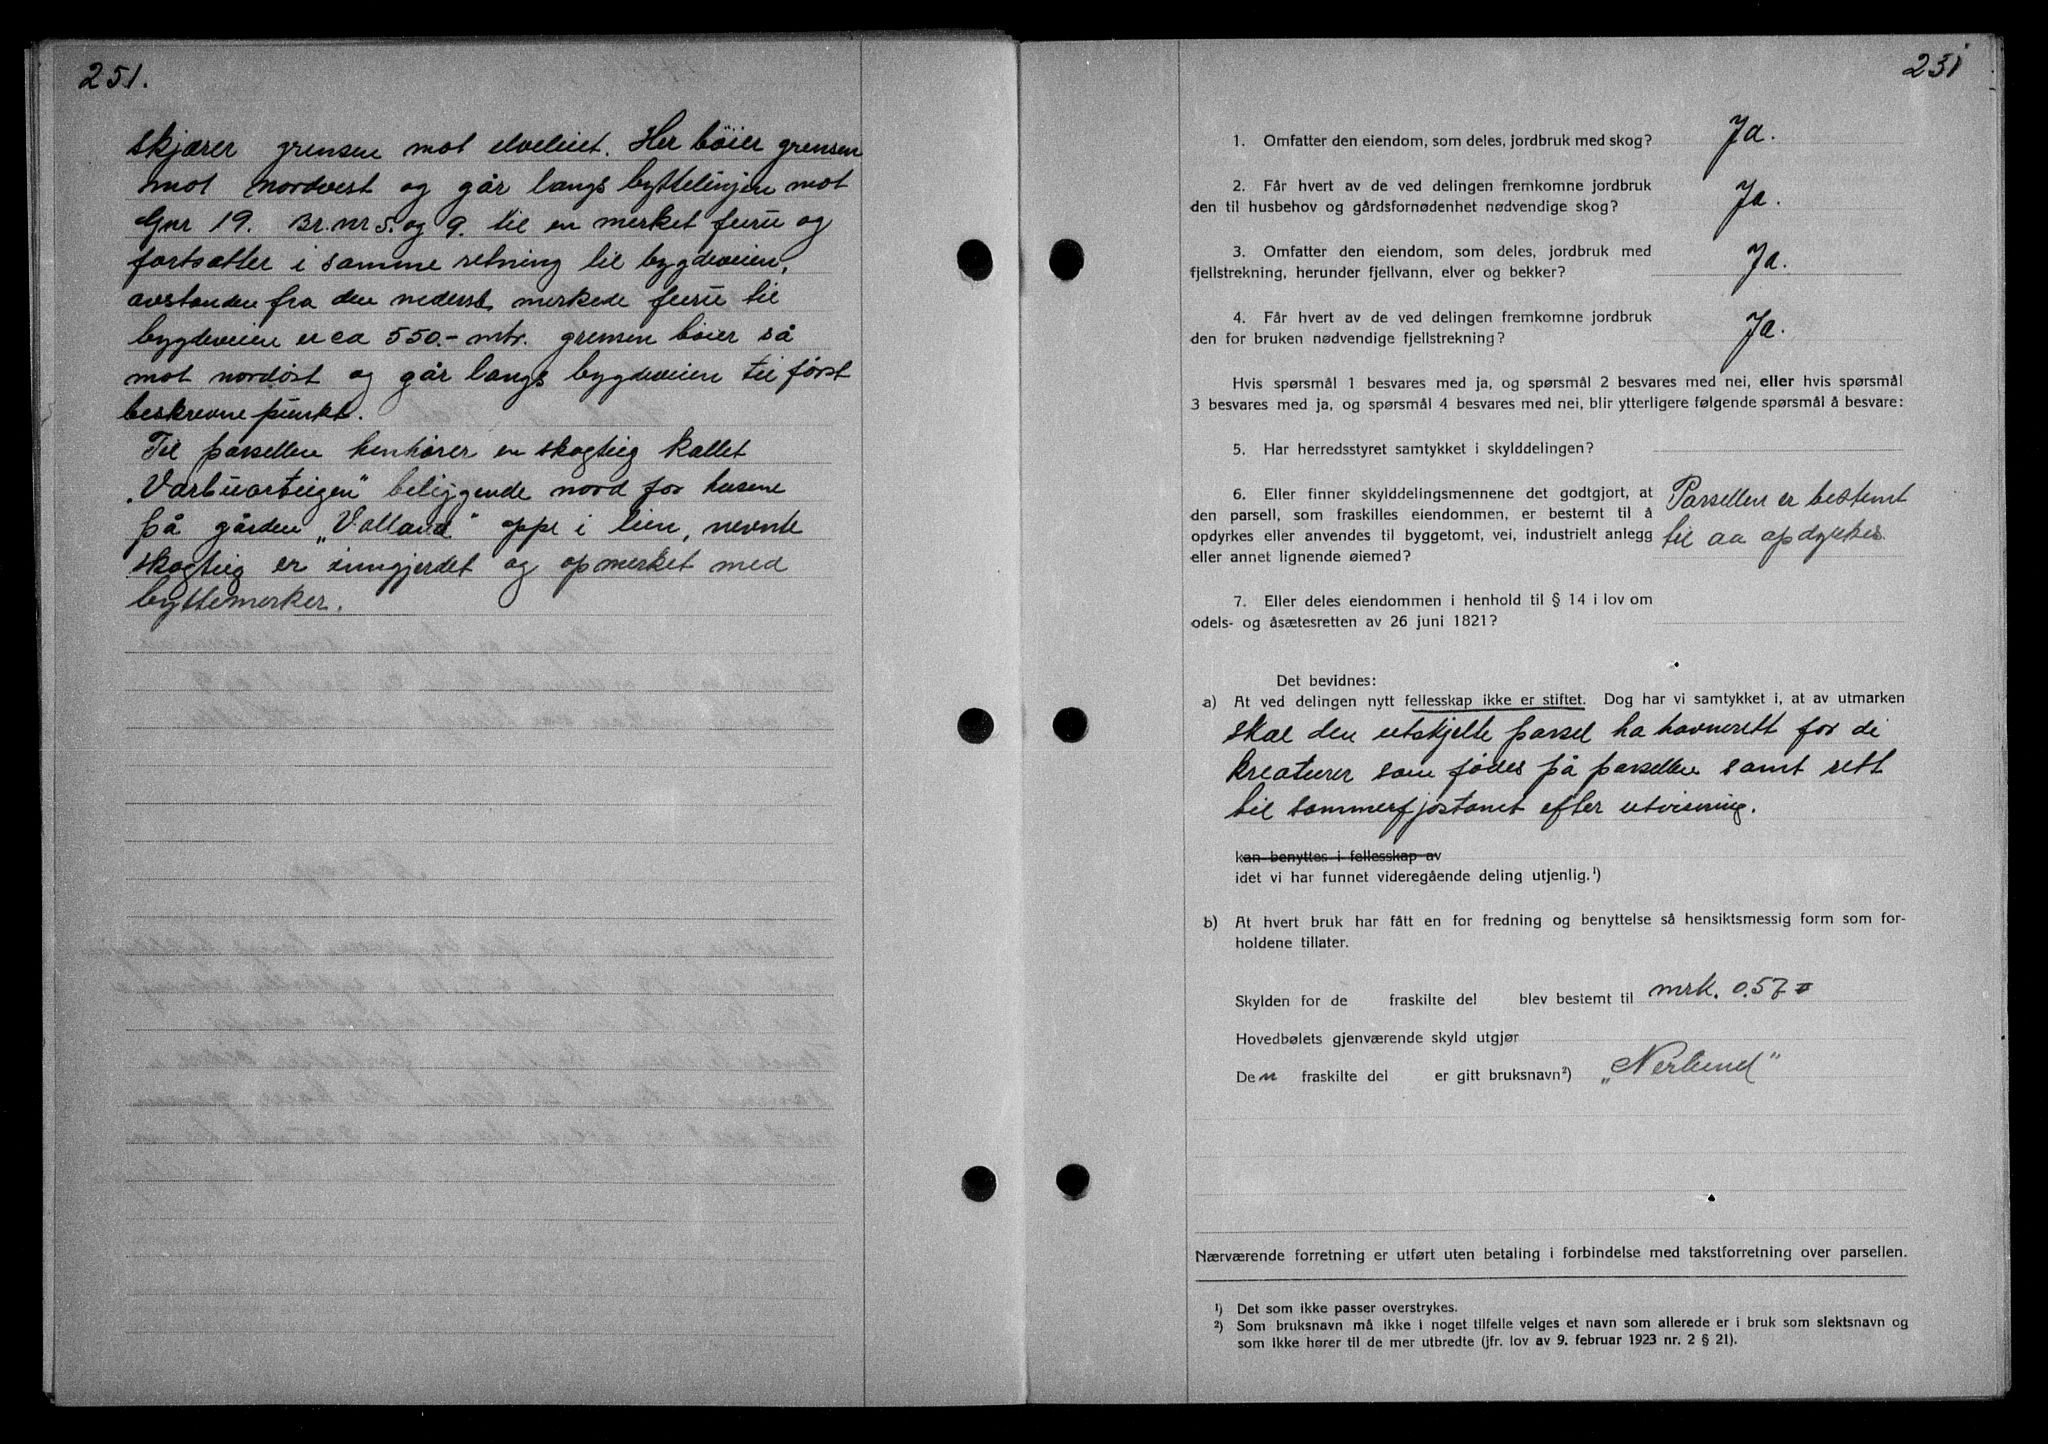 251.
skjærer grensen mot elveleiet. Her bøier grensen
mot nordvest og går langs byttelinjen mot
Gnr 19. Br.nr 5. og 9. til en merket furu og
fortsetter i samme retning til bygdeveien,
avstanden fra den nederst merkede furu til
bygdeveien er ca 550.- mtr. grensen bøier så
mot nordøst og går langs bygdeveien til først
beskrevne punkt.
Til parsellen henhører en skogteig kallet
"Varbuarteigen" beliggende nord for husene
på gården "Volland" oppe i lien, nevnte
skogteig er inngjerdet og opmerket med
byttemerker.
251
1. Omfatter den eiendom, som deles, jordbruk med skog? Ja.
2. Får hvert av de ved delingen fremkomne jordbruk
den til husbehov og gårdsfornødenhet nødvendige skog? Ja.
3. Omfatter den eiendom, som deles, jordbruk med
fjellstrekning, herunder fjellvann, elver og bekker? Ja.
4. Får hvert av de ved delingen fremkomne jordbruk
den for bruken nødvendige fjellstrekning? Ja.
Hvis spørsmål 1 besvares med ja, og spørsmål 2 besvares med nei, eller hvis spørsmål
3 besvares med ja, og spørsmål 4 besvares med nei, blir ytterligere følgende spørsmål å besvare:
5. Har herredsstyret samtykket i skylddelingen?
6. Eller finner skylddelingsmennene det godtgjort, at
den parsell, som fraskilles eiendommen, er bestemt til å
opdyrkes eller anvendes til byggetomt, vei, industrielt anlegg
eller annet lignende øiemed?
Parsellen er bestemt
til aa opdyrkes
7. Eller deles eiendommen i henhold til § 14 i lov om
odels- og åsætesretten av 26 juni 1821?
Det bevidnes:
a) At ved delingen nytt fellesskap ikke er stiftet. Dog har vi samtykket i, at av utmarken
skal den utskjelte parsel ha havnerett for de
kreaturer som fødes på parsellen samt rett
til sommerfjøstomt efter utvisning.
kan benyttes i fellesskap av
idet vi har funnet videregående deling utjenlig.¹)
b) At hvert bruk har fått en for fredning og benyttelse så hensiktsmessig form som for-
holdene tillater.
Skylden for de fraskilte del blev bestemt til mrk. 0.57
Hovedbølets gjenværende skyld utgjør
Den fraskilte del er gitt bruksnavn²) "Nerlund"
Nærværende forretning er utført uten betaling i forbindelse med takstforretning over parsellen.
¹) Det som ikke passer overstrykes.
²) Som bruksnavn må ikke i noget tilfelle velges et navn som allerede er i bruk som slektsnavn og
som ikke hører til de mer utbredte (jfr. lov av 9. februar 1923 nr. 2 § 21).